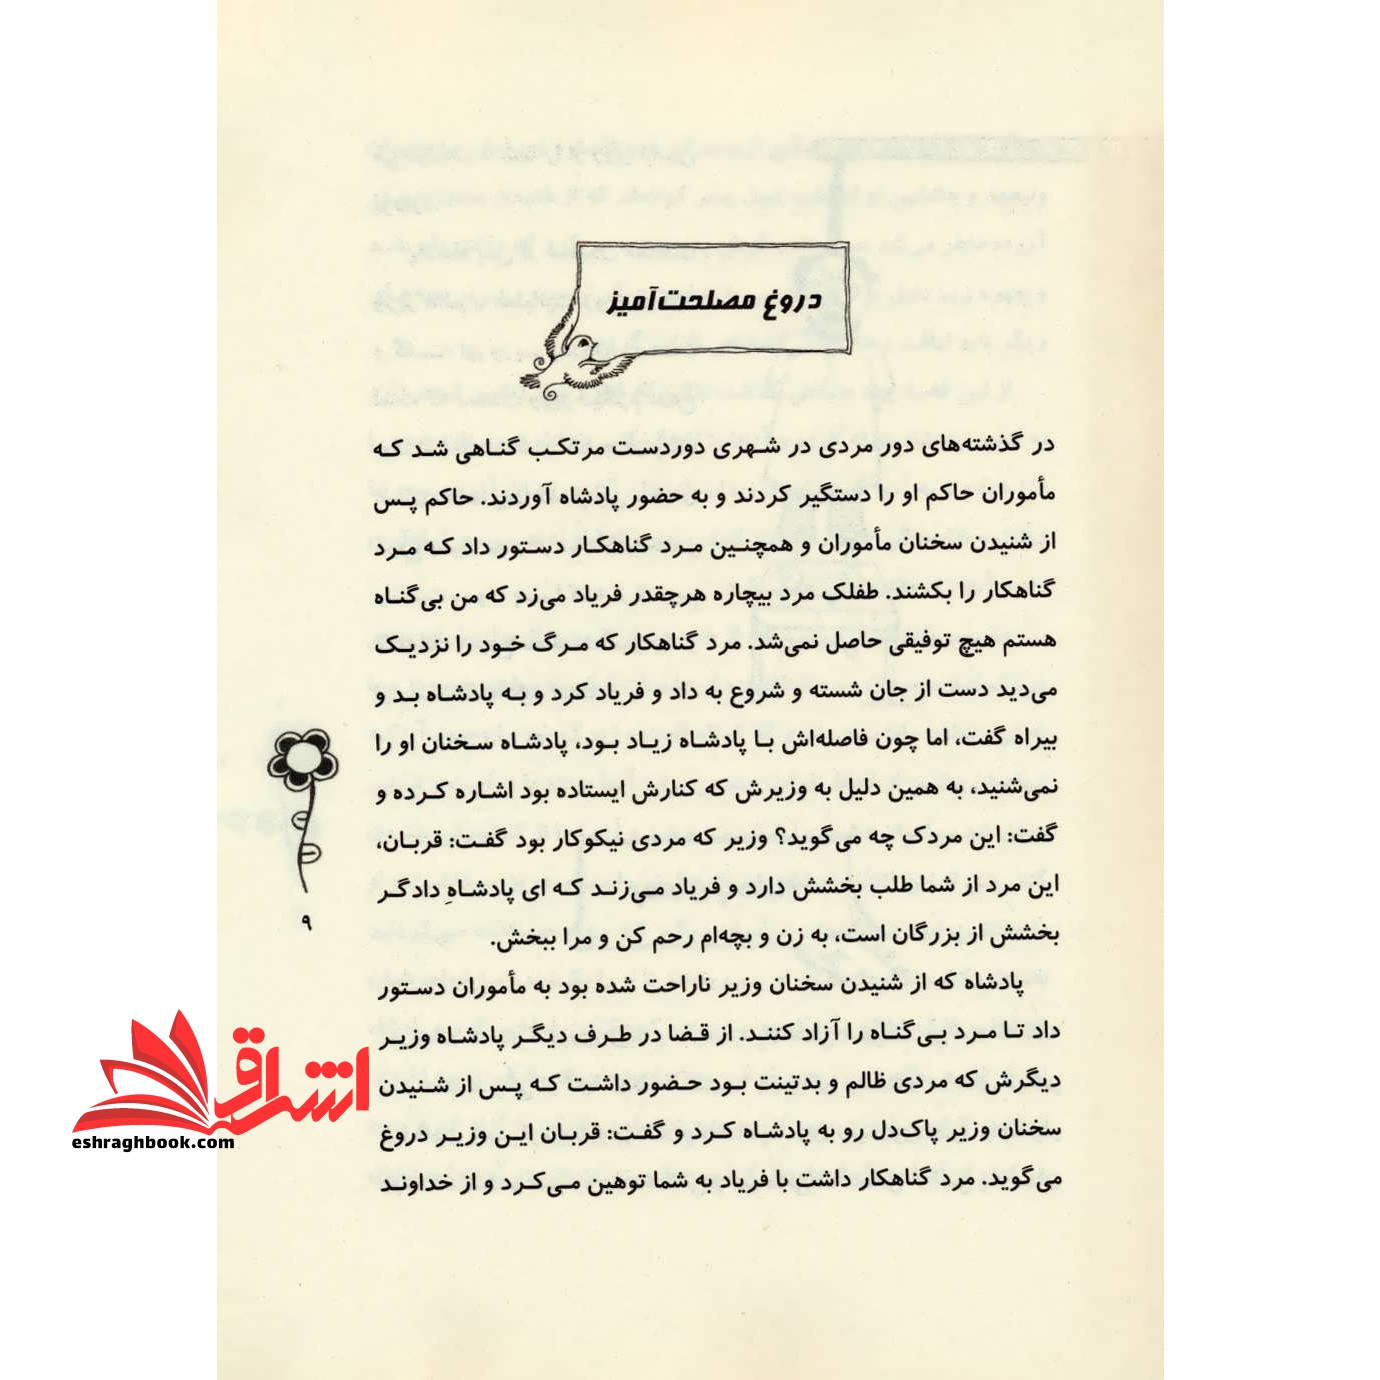 دروغ مصلحت‌آمیز
در گذشته‌های دور مردی در شهری دوردست مرتکب گناهی شد که
مأموران حاکم او را دستگیر کردند و به حضور پادشاه آوردند. حاکم پس
از شنیدن سخنان مأموران و همچنین مرد گناهکار دستور داد که مرد
گناهکار را بکشند. طفلک مرد بیچاره هرچقدر فریاد می‌زد که من بی‌گناه
هستم هیچ توفیقی حاصل نمی‌شد. مرد گناهکار که مرگ خود را نزدیک
می‌دید دست از جان شسته و شروع به داد و فریاد کرد و به پادشاه بد و
بیراه گفت، اما چون فاصله‌اش با پادشاه زیاد بود، پادشاه سخنان او را
نمی‌شنید، به همین دلیل به وزیرش که کنارش ایستاده بود اشاره کرده و
گفت: این مردک چه می‌گوید؟ وزیر که مردی نیکوکار بود گفت: قربان،
این مرد از شما طلب بخشش دارد و فریاد می‌زند که ای پادشاهِ دادگر
بخشش از بزرگان است، به زن و بچه‌ام رحم کن و مرا ببخش.
پادشاه که از شنیدن سخنان وزیر ناراحت شده بود به مأموران دستور
داد تا مرد بی‌گناه را آزاد کنند. از قضا در طرف دیگر پادشاه وزیر
دیگرش که مردی ظالم و بدتینت بود حضور داشت که پس از شنیدن
سخنان وزیر پاک‌دل رو به پادشاه کرد و گفت: قربان این وزیر دروغ
می‌گوید. مرد گناهکار داشت با فریاد به شما توهین می‌کرد و از خداوند
۹
اشراق
eshraghbook.com